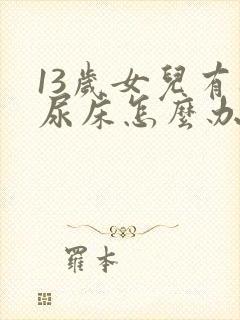 13歲女兒有
尿床怎麼办
羅本